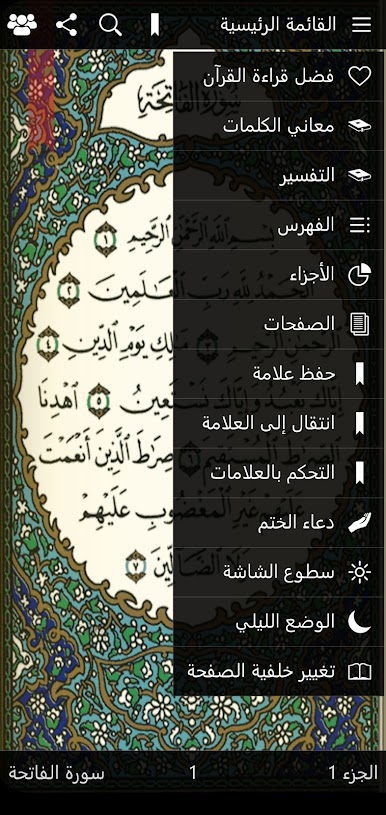 القائمة الرئيسية
فضل قراءة القرآن
معاني الكلمات
التفسير
الفهرس
الأجزاء
الصفحات
حفظ علامة
انتقال إلى العلامة
التحكم بالعلامات
دعاء الختم
سطوع الشاشة
الوضع الليلي
تغيير خلفية الصفحة
سُورَةُ الفَاتِحَةِ
بِسْمِ اللَّهِ الرَّحْمَٰنِ الرَّحِيمِ ١
الْحَمْدُ لِلَّهِ رَبِّ الْعَالَمِينَ ٢
الرَّحْمَٰنِ الرَّحِيمِ ٣ مَالِكِ يَوْمِ الدِّينِ ٤
إِيَّاكَ نَعْبُدُ وَإِيَّاكَ نَسْتَعِينُ ٥ اهْدِنَا
الصِّرَاطَ الْمُسْتَقِيمَ ٦ صِرَاطَ الَّذِينَ أَنْعَمْتَ
عَلَيْهِمْ غَيْرِ الْمَغْضُوبِ عَلَيْهِمْ
وَلَا الضَّالِّينَ ٧
الجزء 1
1
سورة الفاتحة